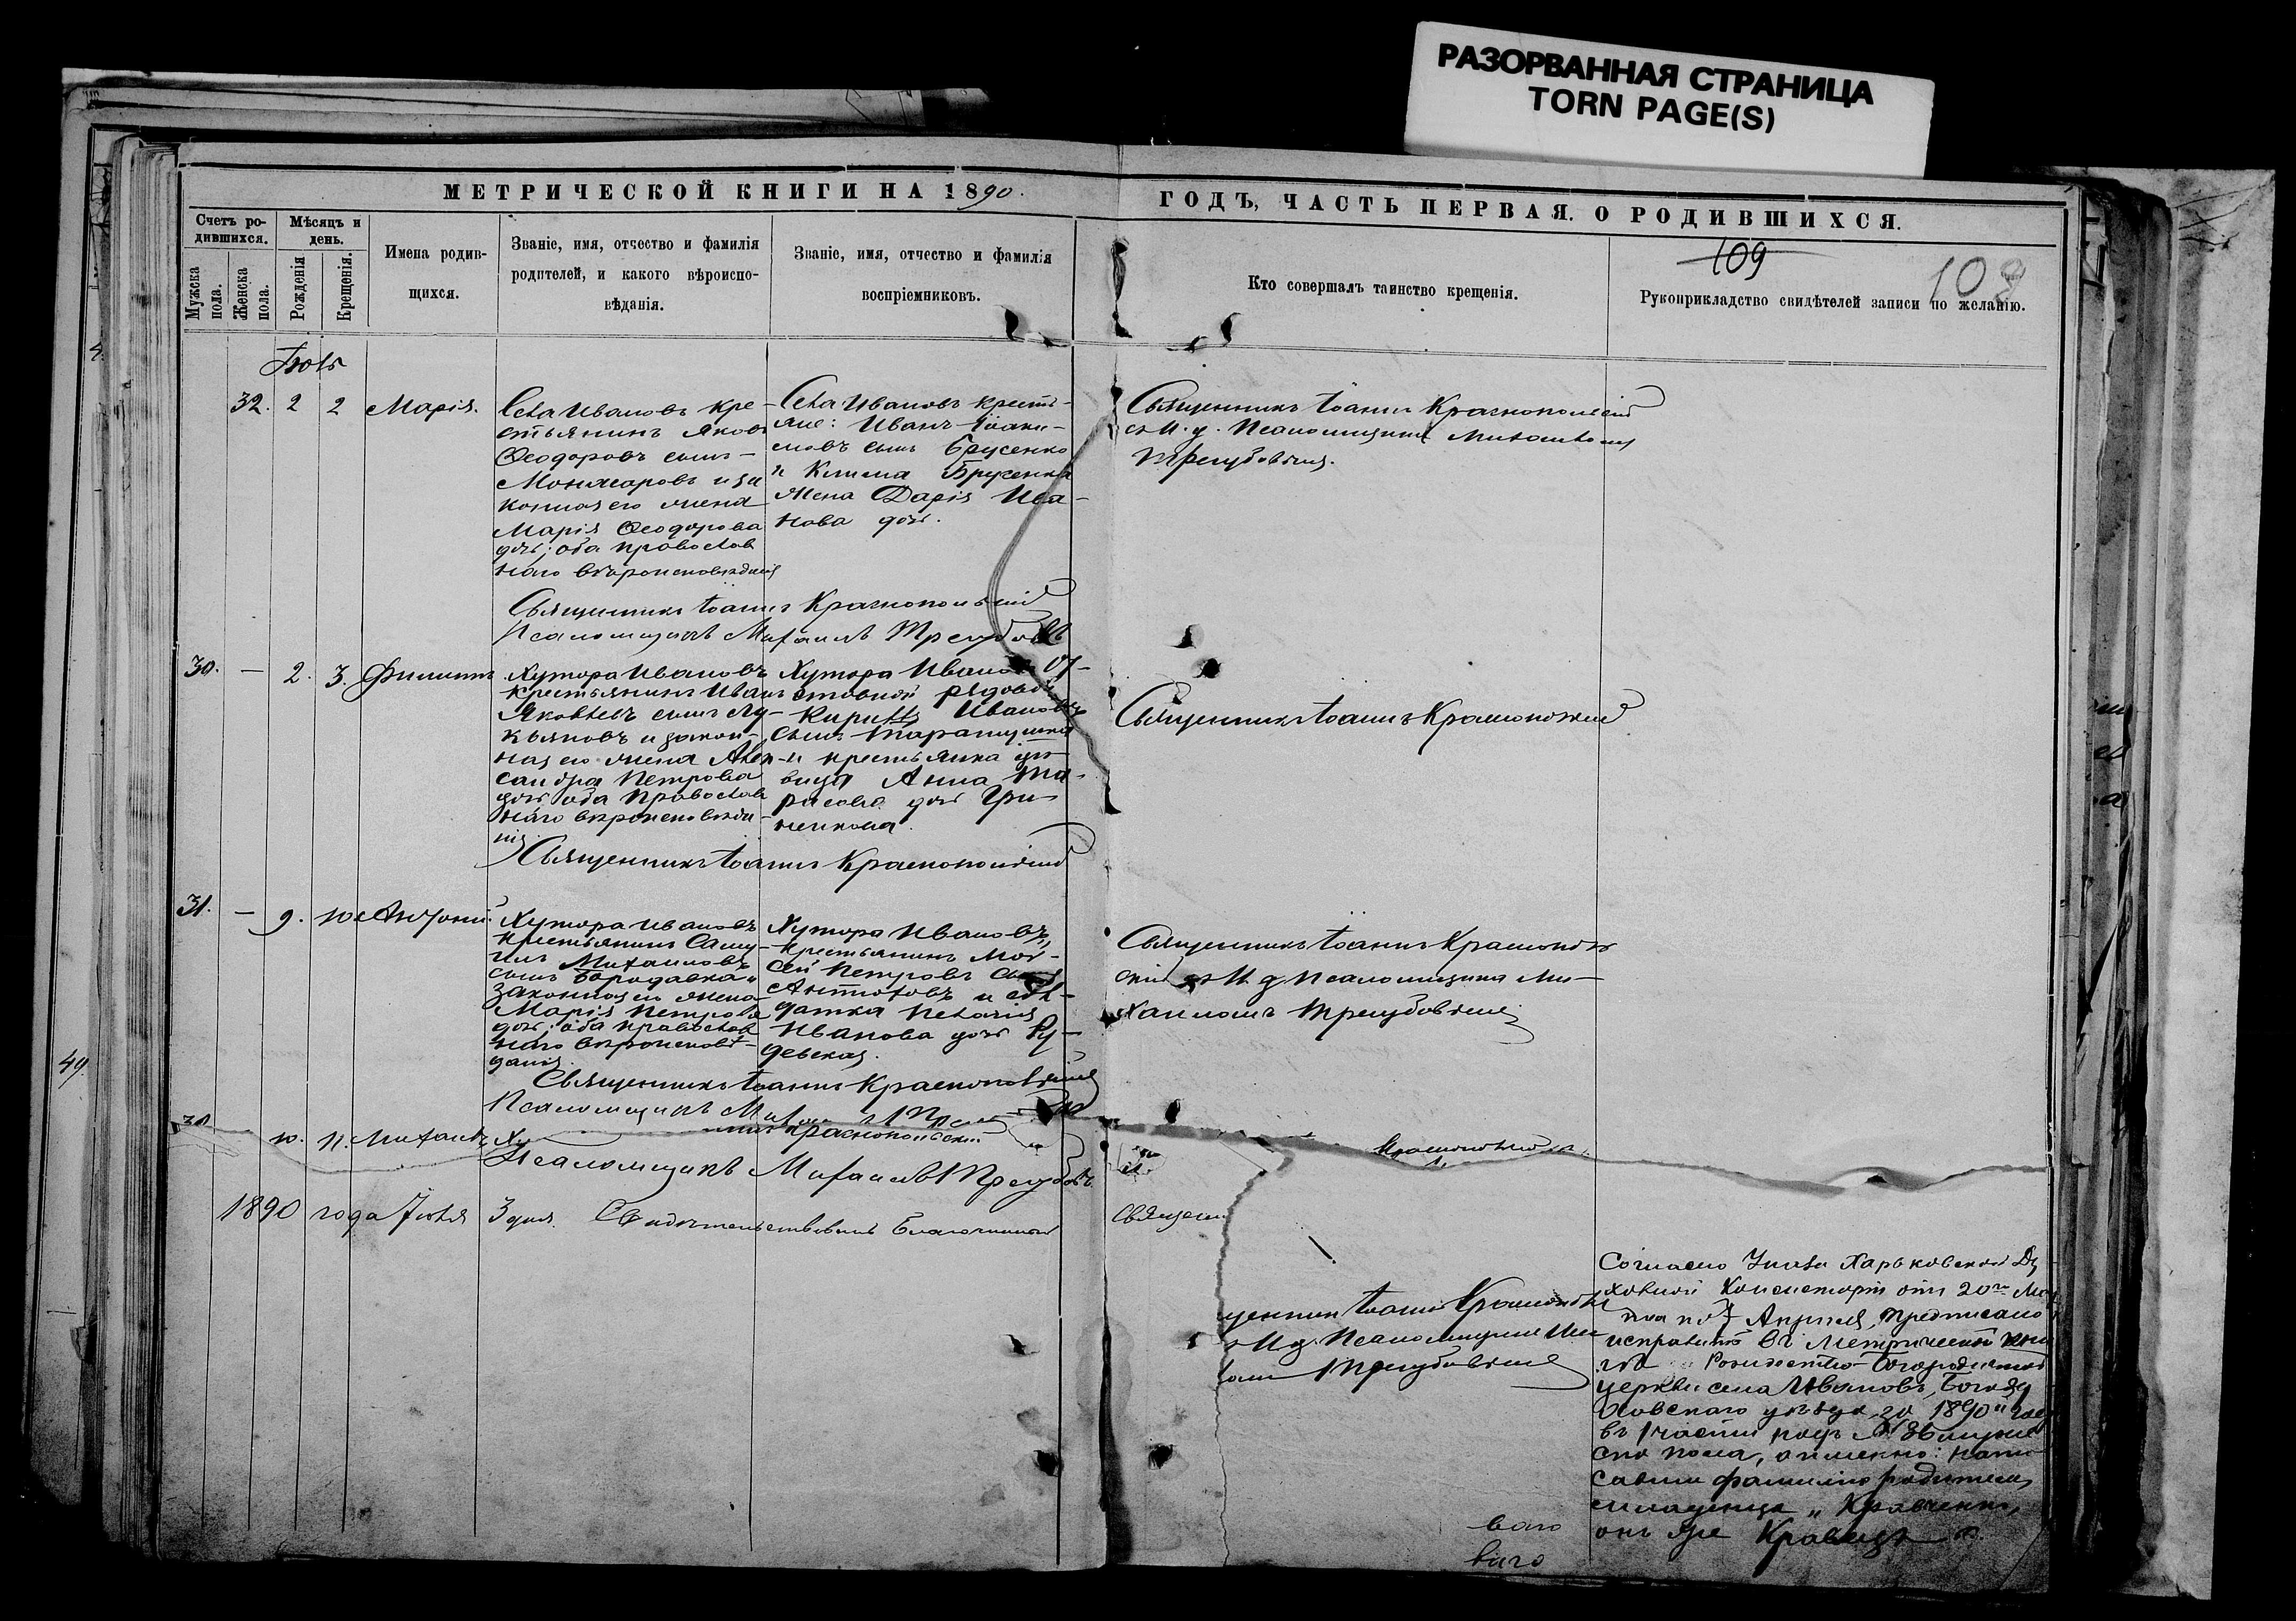 РАЗОРВАННАЯ СТРАНИЦА
TORN PAGE(S)
МЕТРИЧЕСКОЙ КНИГИ НА 1890.
ГОДЪ, ЧАСТЬ ПЕРВАЯ. О РОДИВШИХСЯ.
109
108
Счетъ ро-
дившихся.
Мужска
пола.
Женска
пола.
Мѣсяцъ и
день.
Рожденія
Крещенія.
Имена родив-
щихся.
Званіе, имя, отчество и фамилія
родителей, и какого вѣроиспо-
вѣданія.
Званіе, имя, отчество и фамилія
воспріемниковъ.
Кто совершалъ таинство крещенія.
Рукоприкладство свидѣтелей записи по желанію.
32. 2 2 Марія.
Села Ивановъ кре-
стьянинъ Яковъ
Ѳеодоровъ сынъ
Монжаровъ и за
конная его жена
Марія Ѳеодорова
дочь; оба православ
наго вѣроисповѣданія
Села Ивановъ кресть-
яне: Иванъ Іоаки-
мовъ сынъ Брусенко
и Клима Брусенка
жена Дарія Ива-
нова дочь.
Священникъ Іоаннъ Краснопольскій
съ И. д. Псаломщика Михаиломъ
Трегубовымъ.
Священникъ Іоаннъ Краснопольскій
Псаломщикъ Михаилъ Трегубовъ
30. — 2. 3. Филиппъ
Хутора Ивановъ
крестьянинъ Иванъ
Яковлевъ сынъ Лу-
кьяновъ и закон-
ная его жена Алек-
сандра Петрова
дочь оба православ
наго вѣроисповѣда-
нія.
Хутора Ивановъ от-
ставной рядовой
Кириллъ Ивановъ
сынъ
и крестьянка
вица Анна Та-
расова дочь
Священникъ Іоаннъ Краснопольскій
Священникъ Іоаннъ Краснопольскій
31. — 9. 10 Антоній.
Хутора Ивановъ
крестьянинъ Саму-
илъ Михаиловъ
сынъ Бородавка и
законная его жена
Марія Петрова
дочь; оба православ
наго вѣроисповѣ-
данія.
Хутора Ивановъ
крестьянинъ Мой-
сей Петровъ сынъ
Антоновъ и сол-
датка Пелагія
Иванова дочь Ру-
девская.
Священникъ Іоаннъ Краснополь
скій съ И. д. Псаломщика Ми-
хаиломъ Трегубовымъ
Священникъ Іоаннъ Краснопольскій
Псаломщикъ
10. 11. Михаилъ Ху
Краснопольскій
Псаломщикъ Михаилъ Трегубовъ
1890 года Іюля 3 дня. Свидѣтельствовалъ Благочинный
Священ
49.
щенникъ Іоаннъ Краснополь
съ И. д. Псаломщика Ми
Трегубовымъ
Согласно Указа Харьковской Ду
ховной Консисторіи отъ 20го Мар
та по 7 Апрѣля, предписано
исправить въ метрической кни
гѣ Рождество-Богородичной
церкви села Ивановъ, Богоду
ховскаго уѣзда, за 1890й годъ
въ 1 части подъ № мужес
ка пола, а именно: напи
савши фамилію родителя
младенца „Кравченко,
онъ же Кравецъ“
ваго
ваго